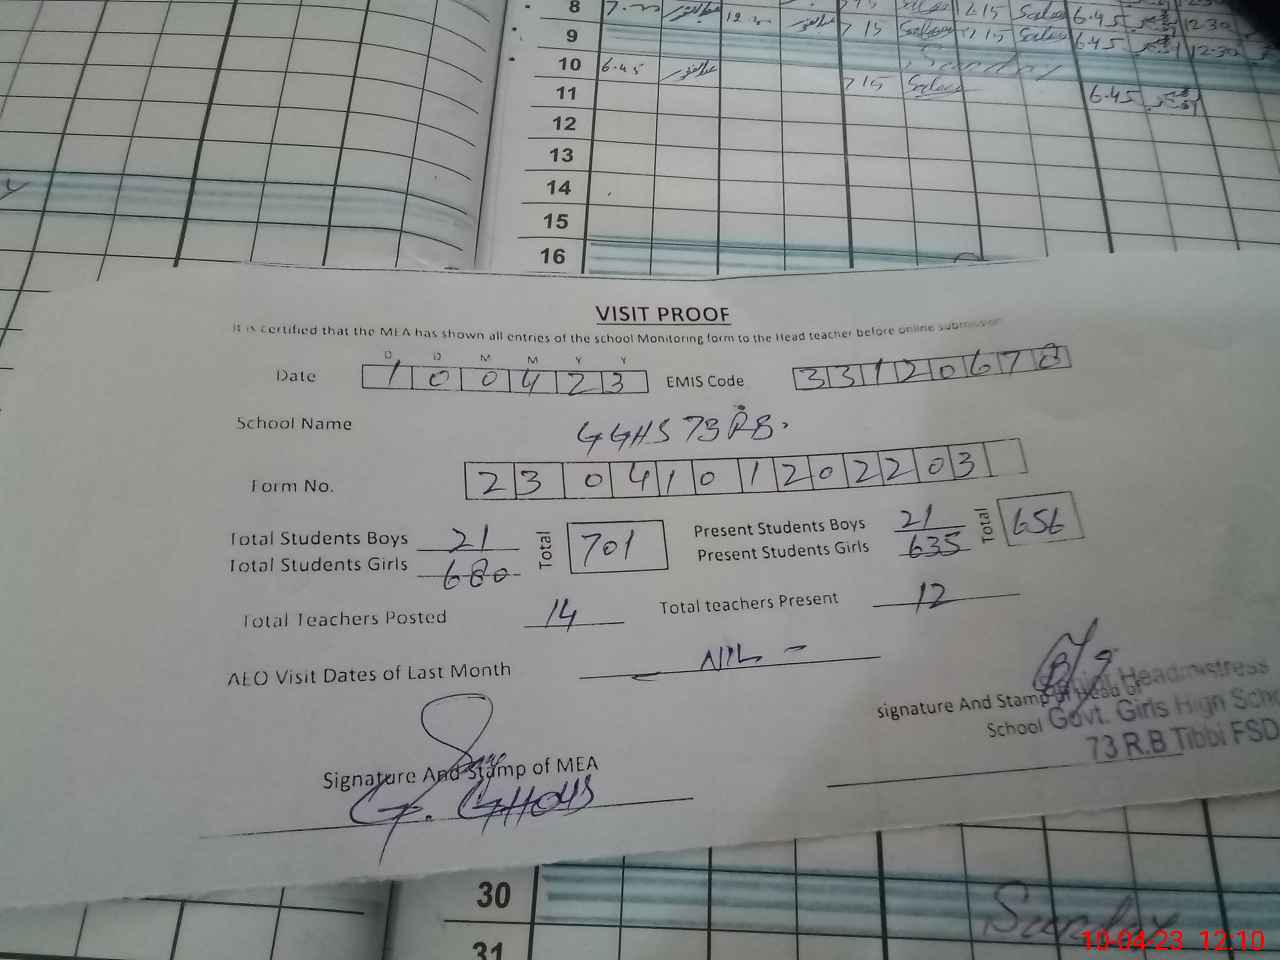 8 7.00 12.00 7 15 Salea 12 15 Salea 6.45 12.30
9 7 15 7 15 Salea 6.45 12.30
10 6.45 Sunday
11 7 15 Salea 6.45
12
13
14
15
16
VISIT PROOF
It is certified that the MEA has shown all entries of the school Monitoring form to the Head teacher before online submission
D D M M Y Y
Date 1 0 0 4 2 3 EMIS Code 3 3 1 2 0 6 7 8
School Name GGHS 73 RB.
Form No. 2 3 0 4 1 0 1 2 0 2 2 0 3
Total Students Boys 21 Total 701 Present Students Boys 21 Total 656
Total Students Girls 680 Present Students Girls 635
Total Teachers Posted 14 Total teachers Present 12
AEO Visit Dates of Last Month NIL -
signature And Stamp of Head of
School
Headmistress
Govt. Girls High Scho
73 R.B Tibbi FSD
Signature And Stamp of MEA
G. GHOUS
30
31 Sunday
10-04-23 12:10